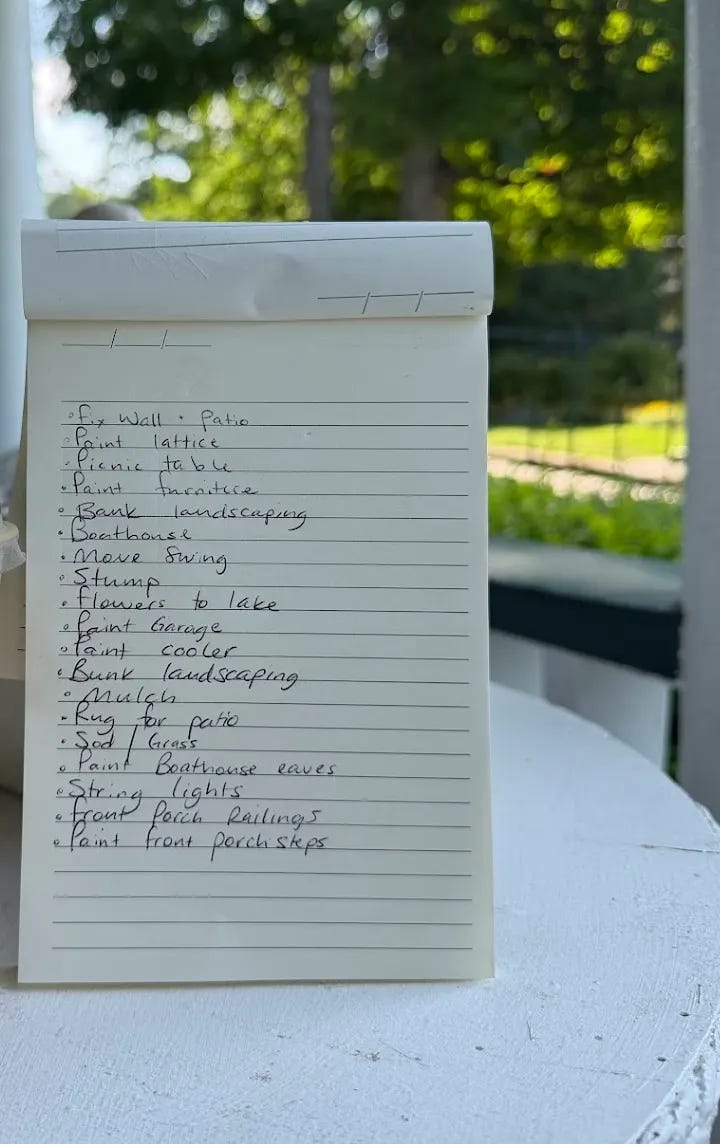 • Fix Wall • Patio
• Paint lattice
• Picnic table
• Paint furniture
• Bank landscaping
• Boathouse
• Move Swing
• Stump
• Flowers to lake
• Paint Garage
• Paint cooler
• Bunk landscaping
• Mulch
• Rug for patio
• Sod / Grass
• Paint Boathouse eaves
• String lights
• Front Porch Railings
• Paint front porch steps